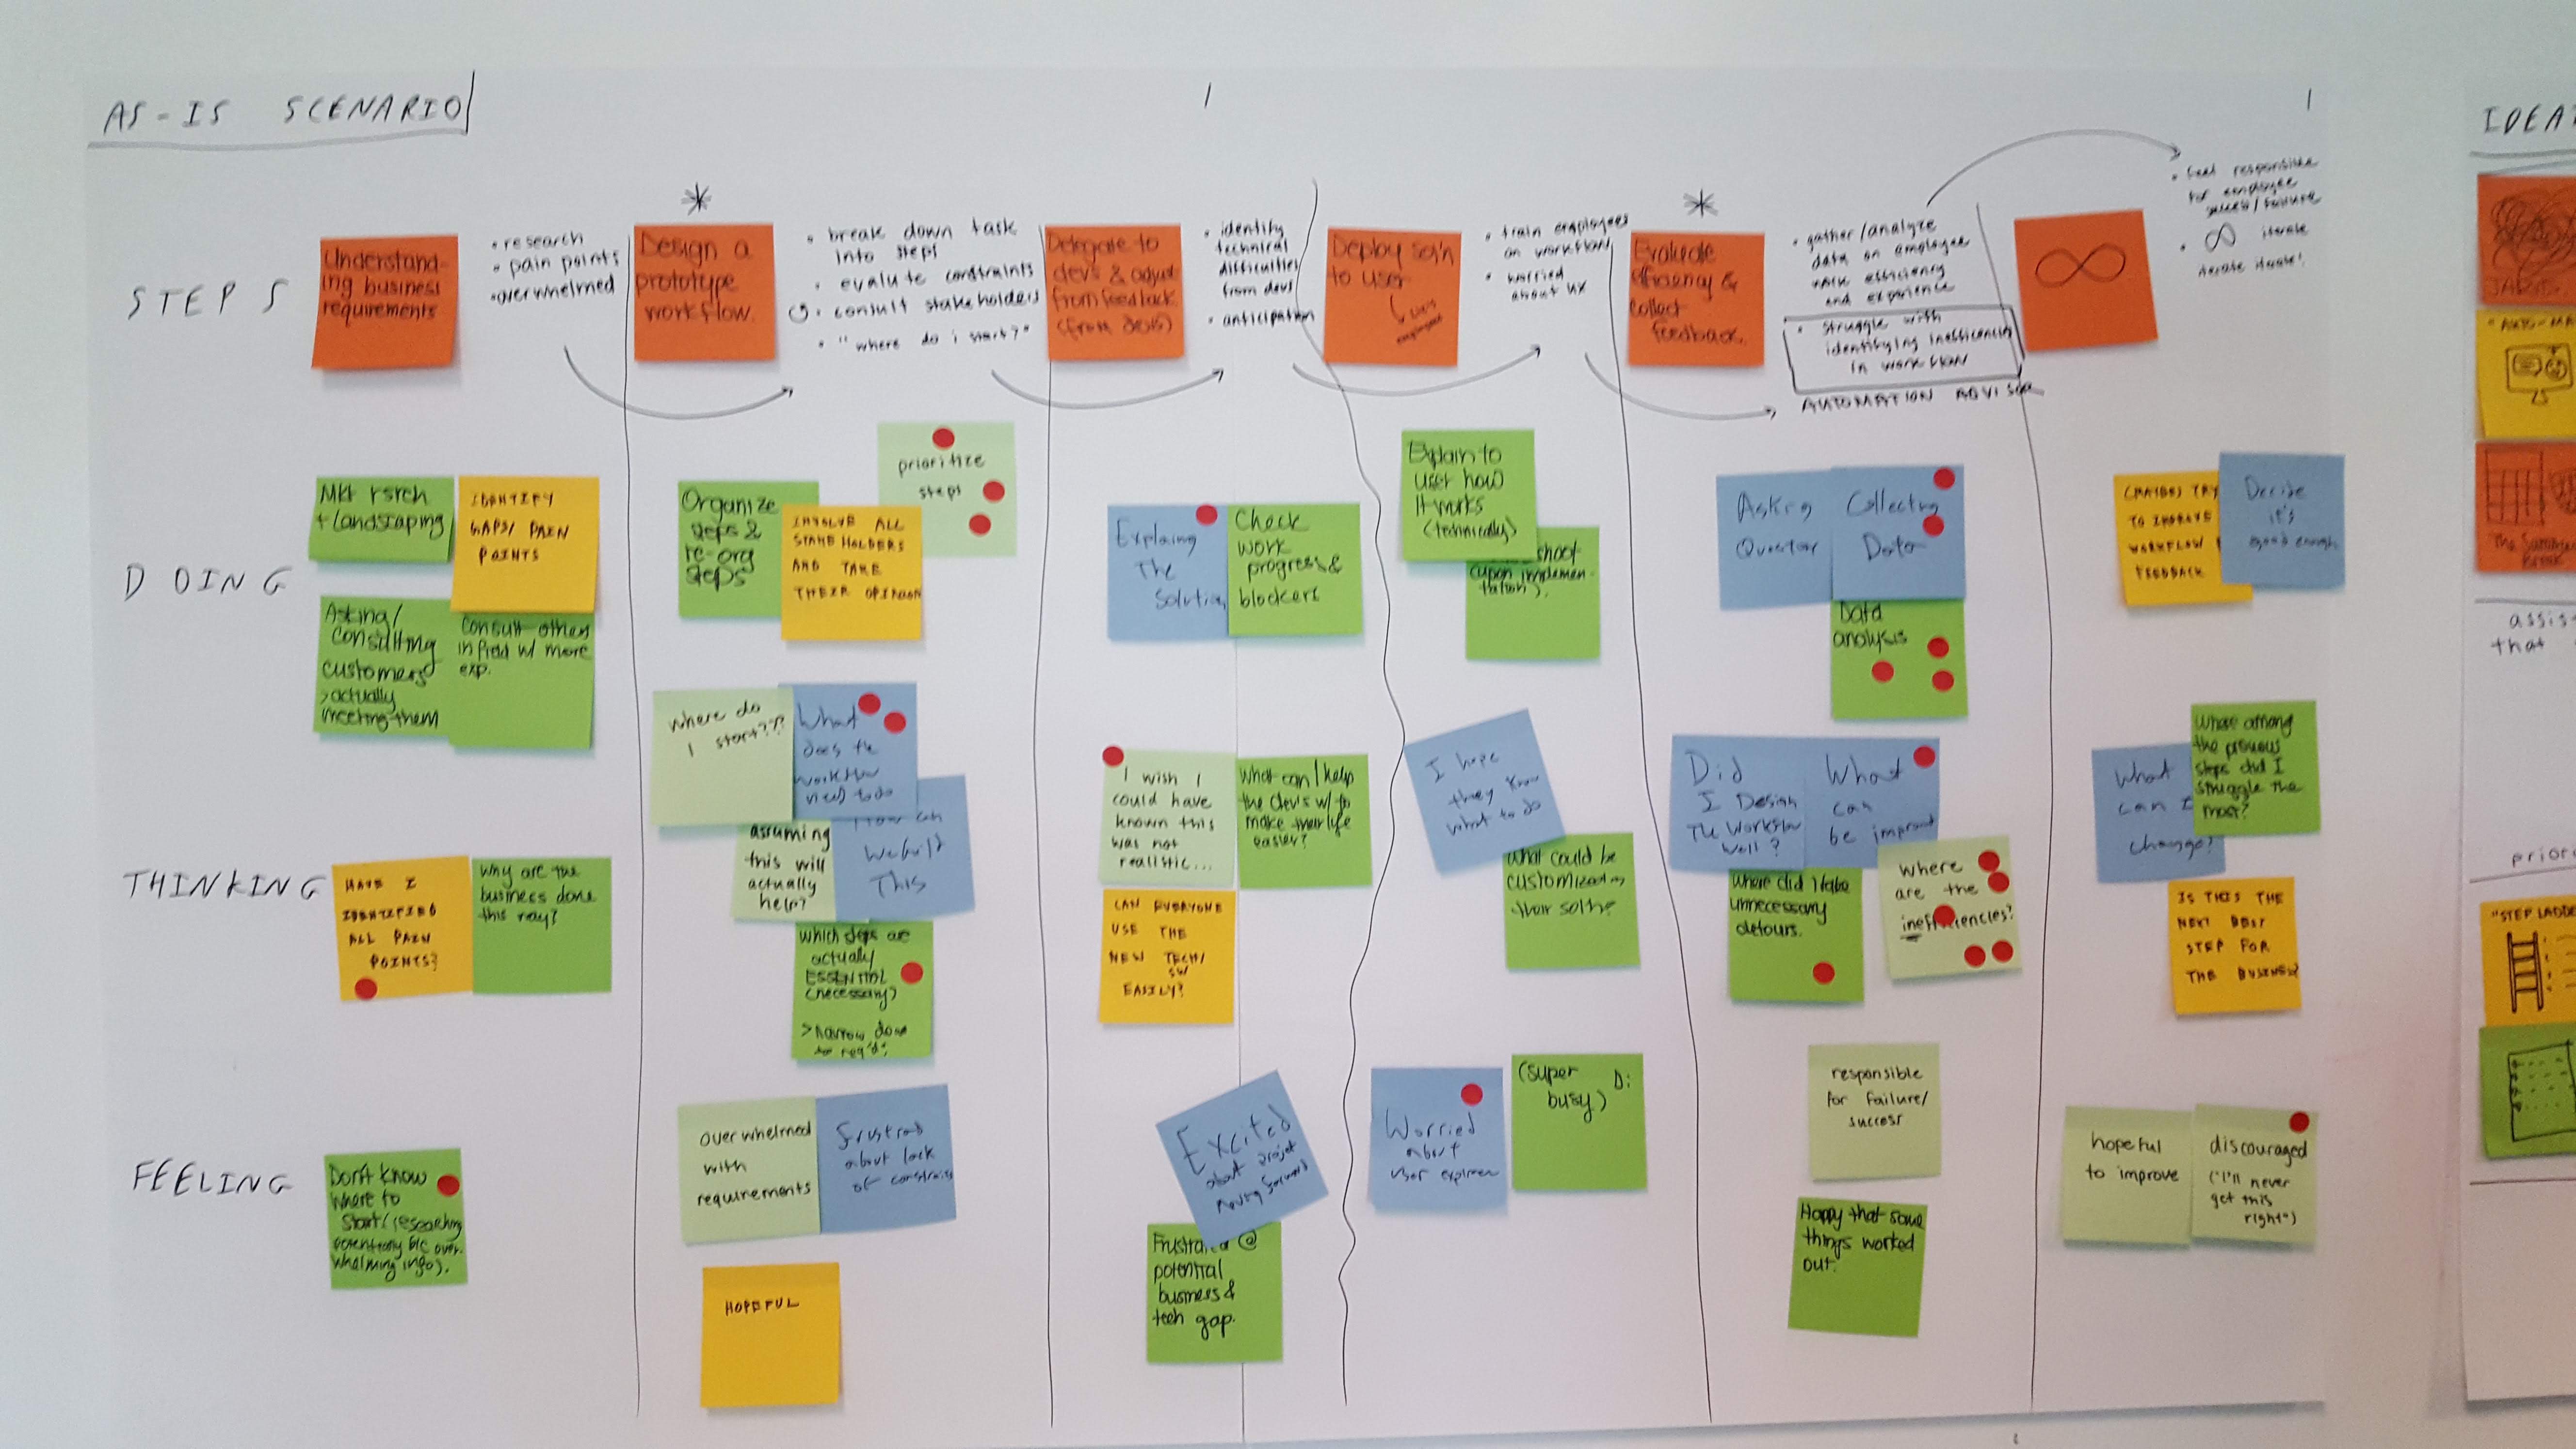 AS-IS SCENARIO
IDEAT
STEPS
Understand-
ing business
requirements
• research
• pain points
• overwhelmed
*
Design a
prototype
workflow.
• break down task
into steps
• evaluate constraints
• consult stakeholders
• "where do i start?"
Delegate to
devs & adjust
from feedback.
(from devs)
• identify
technical
difficulties
from devs
• anticipation
Deploy sol'n
to user
• train employees
on workflow
• worried
about UX
*
Evaluate
efficiency &
collect
feedback.
• gather/analyze
data on employee
task efficiency
and experience
• struggle with
identifying inefficiencies
in workflow
AUTOMATION ADVISOR
∞
• feel responsible
for employee
success/failure
• ∞ iterate
iterate iterate!
DOING
Mkt rsrch
+ landscaping
IDENTIFY
GAPS/ PAIN
POINTS
Asking/
consulting
customers
> actually
meeting them
Consult others
in field w/ more
exp.
Organize
steps &
re-org
steps
INVOLVE ALL
STAKEHOLDERS
AND TAKE
THEIR OPINION
prioritize
steps
Explaining
The
Solution
Check
work
progress &
blockers
Explain to
user how
it works
(technically)
shoot
(upon implemen-
tation).
Asking
Question
Collecting
Data
Data
analysis
(MAYBE) TRY
TO IMPROVE
WORKFLOW
FEEDBACK
Decide
it's
good enough
THINKING
HAVE I
IDENTIFIED
ALL PAIN
POINTS?
Why are the
business done
this way?
where do
I start??
What
does the
workflow
need to do
assuming
this will
actually
help?
How can
We build
This
Which steps are
actually
ESSENTIAL
(necessary)
> narrow down
to req'd.
I wish I
could have
known this
was not
realistic...
What can I help
the dev's w/ to
make their life
easier?
CAN EVERYONE
USE THE
NEW TECH/
SW
EASILY?
I hope
they know
what to do
What could be
customized
Did
I Design
The Workflow
Well?
What
can
be improved
Where did I take
unnecessary
detours.
where
are the
inefficiencies?
What
can I
change?
Where among
the previous
steps did I
struggle the
most?
IS THIS THE
NEXT BEST
STEP FOR
THE BUSINESS?
FEELING
Don't know
where to
start (researching
potentially b/c over-
whelming info).
overwhelmed
with
requirements
frustrated
about lack
of constraints
HOPEFUL
Excited
about project
moving forward
Frustrated @
potential
business &
tech gap.
Worried
about
user experience
(super D:
busy)
responsible
for failure/
success
Happy that some
things worked
out.
hopeful
to improve
discouraged
("I'll never
get this
right")
JARVIS
"AUTO-MA
The Summary
assis
that
prior
"STEP LADDE